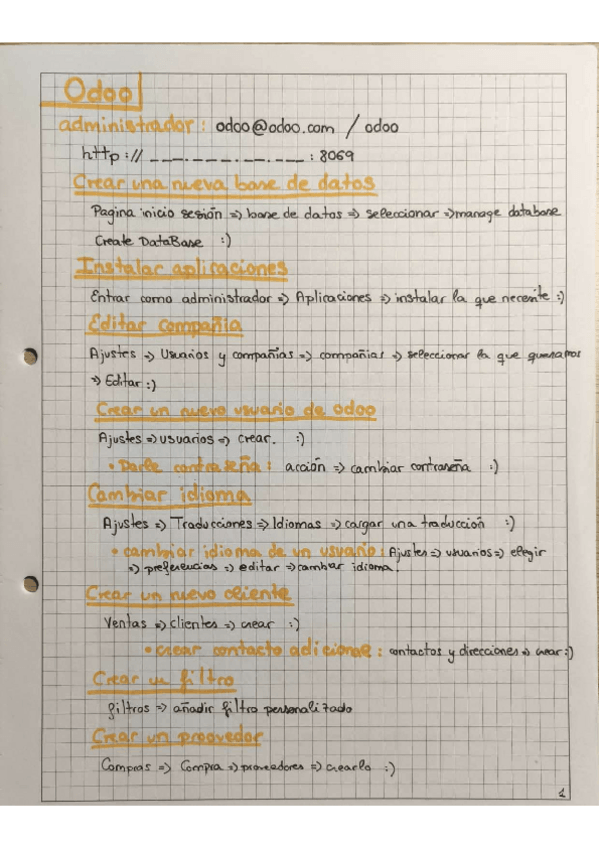 Odoo
administrador: odoo@odoo.com / odoo
http:// _ _ _. _ _ _. _ _. _ _ _ : 8069
Crear una nueva base de datos
Pagina inicio sesión => base de datos => seleccionar => manage database
Create DataBase :)
Instalar aplicaciones
Entrar como administrador => Aplicaciones => instalar la que necesite :)
Editar compañia
Ajustes => Usuarios y compañias => compañias => seleccionar la que queramos
=> Editar :)
Crear un nuevo usuario de odoo
Ajustes => usuarios => crear. :)
• Darle contraseña: acción => cambiar contraseña :)
Cambiar idioma
Ajustes => Traducciones => Idiomas => cargar una traducción :)
• cambiar idioma de un usuario: Ajustes => usuarios => elegir
=> preferencias => editar => cambiar idioma.
Crear un nuevo cliente
Ventas => clientes => crear :)
• crear contacto adicional: contactos y direcciones => crear :)
Crear un filtro
filtros => añadir filtro personalizado
Crear un proovedor
Compras => Compra => proveedores => crearlo :)
1